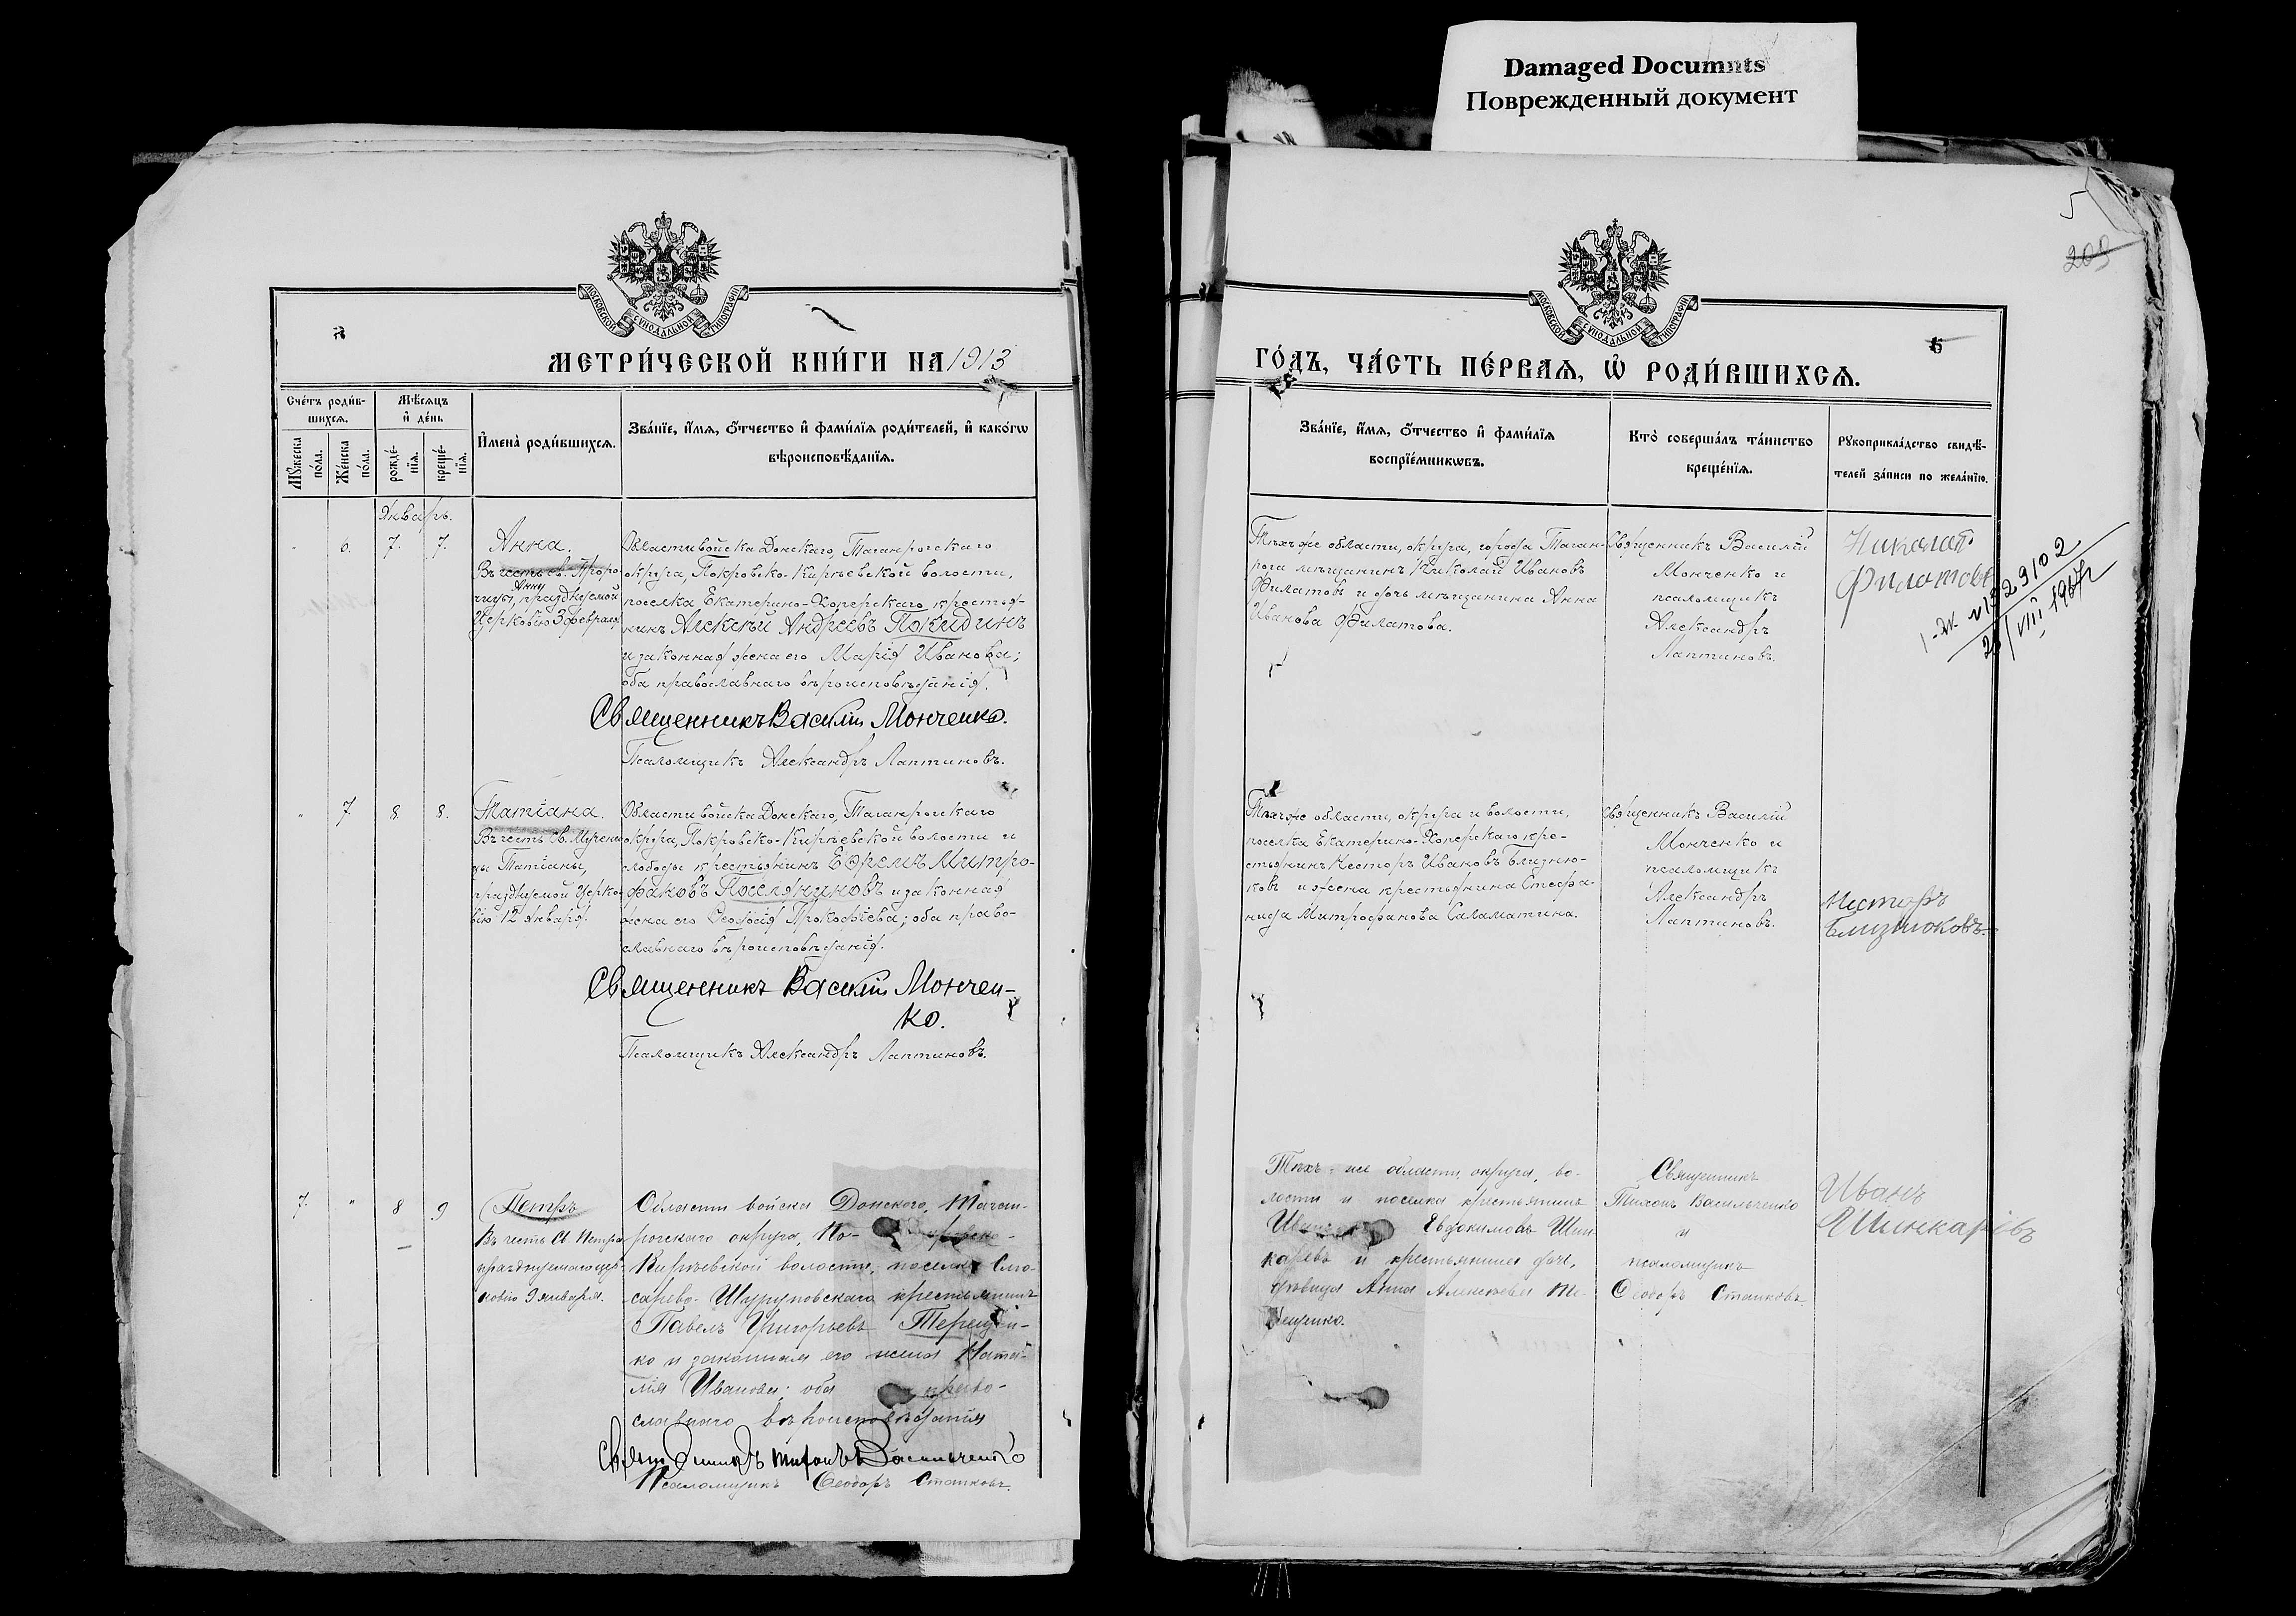 Damaged Documnts
Поврежденный документ
5
203
МОСКОВСКОЙ СУНОДАЛЬНОЙ ТИПОГРАФІИ
МЕТРИ́ЧЕСКОЙ КНИ́ГИ НА 1913
Сче́тъ роди́вшихся.
Мѣ́сяцъ и де́нь
Мꙋ́жеска по́ла.
Же́нска по́ла.
рожде́нїя.
креще́нїя.
И҆мена̀ роди́вшихся.
Зва́нїе, и҆́мя, ѻ҆́тчество и҆ фами́лїя роди́телей, и҆ како́гѡ
вѣроисповѣ́данїя.
Январь.
6. 7. 7.
Анна.
Въ честь св. Проро-
чицы Анны, празднуемой
Церковію 3 февраля
Области войска Донскаго, Таганрогскаго
округа, Покровско-Кирѣевской волости,
поселка Екатерино-Хоперскаго крестья-
нинъ Алексѣй Андреевъ Покидинъ
и законная жена его Марія Иванова;
оба православнаго вѣроисповѣданія.
Священникъ Василій Мончено.
Псаломщикъ Александръ Лаптиновъ.
" 7 8 8.
Татіана.
Въ честь Св. Мучени-
цы Татіаны,
празднуемой Церко-
вію 12 января.
Области войска Донскаго, Таганрогскаго
округа, Покровско-Кирѣевской волости и
слободы крестьянинъ Ефремъ Митро-
фановъ Поселяниновъ и законная
жена его Феодосія Прокофіева; оба право-
славнаго вѣроисповѣданія.
Священникъ Василій Мончен-
ко.
Псаломщикъ Александръ Лаптиновъ.
7. " 8 9
Петръ
Въ честь Св. Петра
празднуемаго цер-
ковію 9 января.
Области войска Донского, Таган-
рогскаго округа, По- кровско-
Кирѣевской волости, поселка Слю-
сарево-Шуруповскаго крестьянинъ
Павелъ Григорьевъ Терещен-
ко и законная его жена Ната-
лія Иванова; оба право-
славнаго вѣроисповѣданія
Священникъ Тихонъ Васильченко
Псаломщикъ Ѳеодоръ Станковъ.
МОСКОВСКОЙ СУНОДАЛЬНОЙ ТИПОГРАФІИ
ГО́ДЪ, ЧА́СТЬ ПЕ́РВАЯ, Ѡ҆ РОДИ́ВШИХСЯ.
Зва́нїе, и҆́мя, ѻ҆́тчество и҆ фами́лїя
воспрїе́мникѡвъ.
Кто̀ соверша́лъ та́инство
креще́нїя.
Рꙋкоприкла́дство свидѣ́-
телей за́писи по жела́нїю.
Тѣхъ же области, округа, города Таган-
рога мѣщанинъ Николай Ивановъ
Филатовъ и дочь мѣщанина Анна
Иванова Филатова.
Священникъ Василій
Мончено и
псаломщикъ
Александръ
Лаптиновъ.
Николай
Филатовъ
Тѣхъ же области, округа и волости,
поселка Екатерино-Хоперскаго кре-
стьянинъ Несторъ Ивановъ Близню-
ковъ и жена крестьянина Стефа-
нида Митрофанова Саламатина.
Священникъ Василій
Мончено и
псаломщикъ
Александръ
Лаптиновъ.
Несторъ
Близнюковъ
Тѣхъ-же области, округа, во-
лости и поселка крестьянинъ
Евдокимовъ Шин-
каревъ и крестьянина дочь,
дѣвица Анна Алексѣева Те-
рещенко.
Священникъ
Тихонъ Васильченко
и
псаломщикъ
Ѳеодоръ Станковъ.
Иванъ
Шинкарівъ